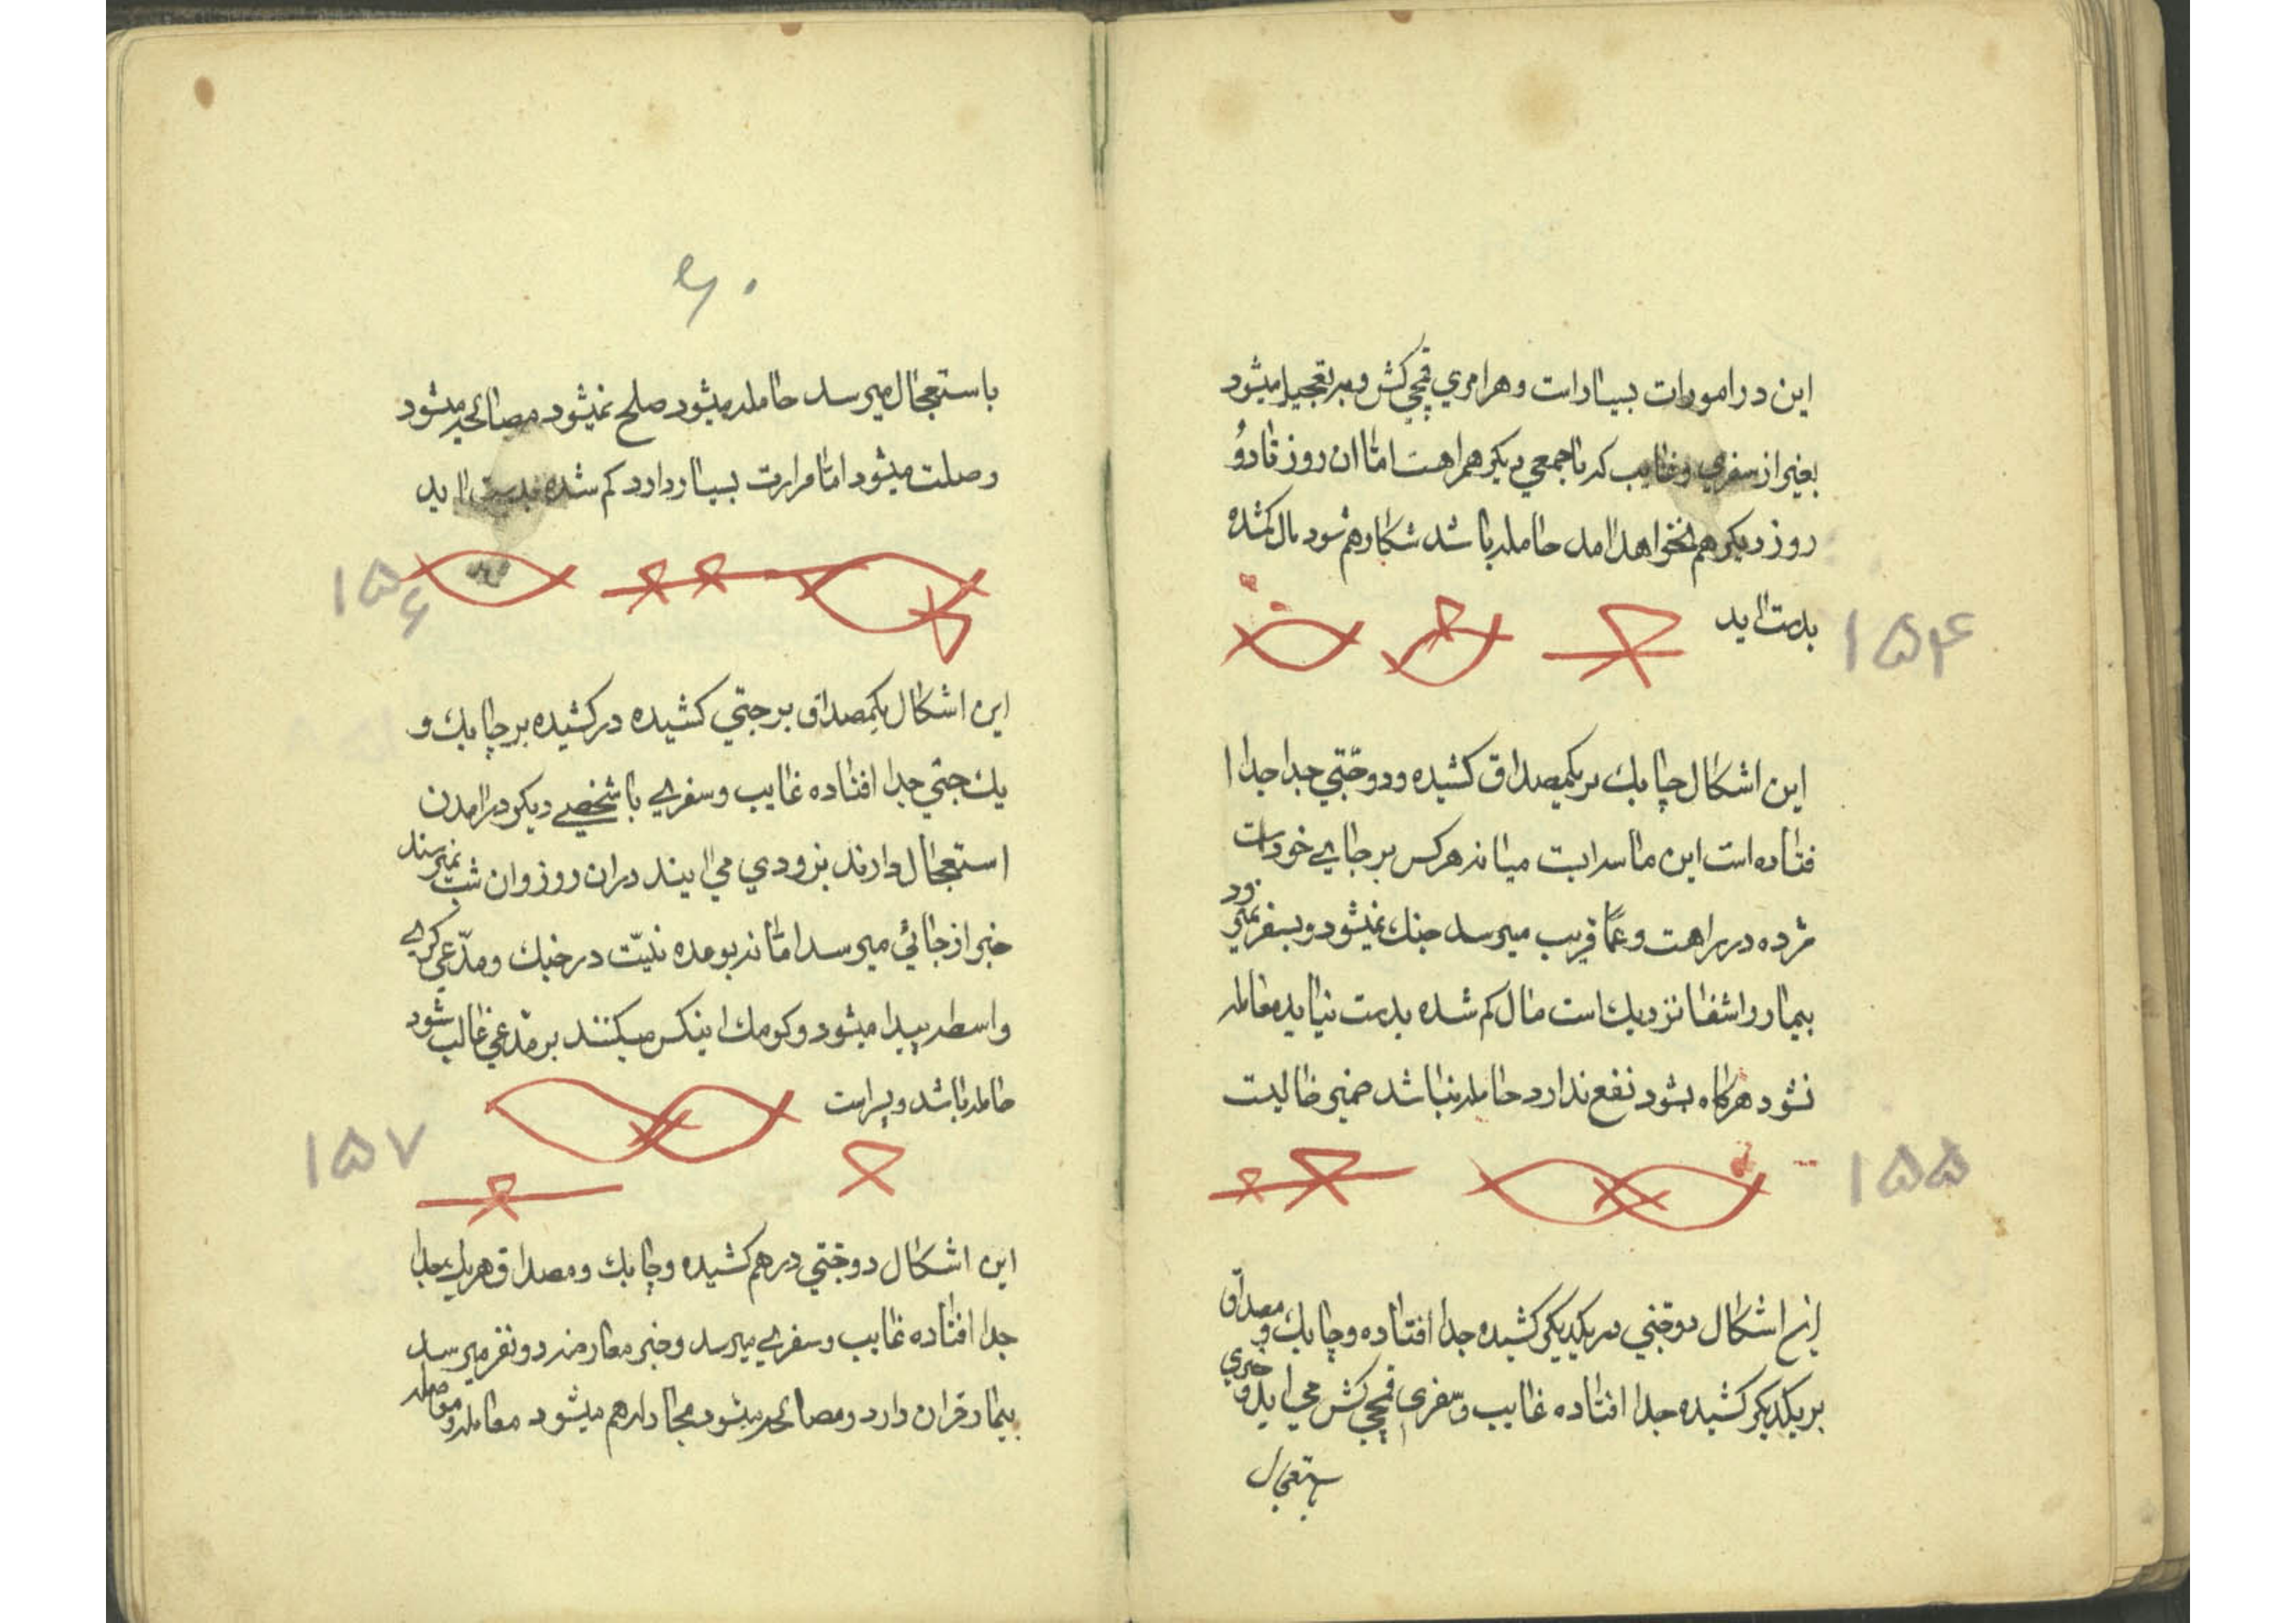 این در امورات بسیار است و هر امری قمچی کش و بر تعجیل میشود
بغیر از سفری و غایب که با جمعی دیکر همراهست اما ان روز تا دو
روز دیکر هم نخواهد امد حامله باشد شکار هم شود مال کمشده
بدست اید
۱۵۴
این اشکال چابک بر یکمصداق کشیده و دو جتی جدا جدا ا
فتاده است این ماسرابت میاند هرکس بر جایی خود است
مژده در راهست و عما قریب میرسد جنک نمیشود و بسفر نمیرود
بیمار را شفا نزدیک است مال کم شده بدست نیاید معامله
نشود هرکاه بشود نفع ندارد حامله نباشد ضمیر خالیست
۱۵۵
این اشکال دو جتی در یکدیکر کشیده جدا افتاده و چابک و مصداق
بر یکدیکر کشیده جدا افتاده غایب و سفری قمچی کش می اید و خبری
ستعجال
۶۰
باستعجال میرسد حامله میشود صلح نمیشود مصالحه میشود
وصلت میشود اما مرارت بسیار دارد کم شده بدست اید
۱۵۶
این اشکال یکمصداق بر جتی کشیده در کشیده بر چابک و
یک جتی جدا افتاده غایب و سفری با شخصی دیکر در امدن
استعجال دارند بزودی می ایند در ان روز و ان شب نمیرسند
خبر از جائی میرسد اما ند بومده نیّت در جنک و مدّعی کری
واسطه پیدا میشود و کومک اینکس میکنند بر مدّعی غالب شود
حامله باشد و پسر است
۱۵۷
این اشکال دو جتی در هم کشیده و چابک و مصداق هر یک جدا
جدا افتاده غایب و سفری میرسد و خبر معارضه دو نفر میرسد
بیمار قران دارد و مصالحه میشود مجادله هم میشود معامله و معامله